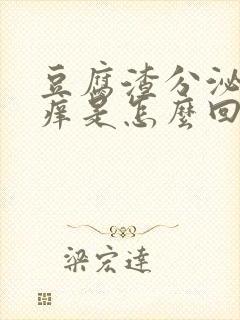 豆腐渣分泌
痒是怎麼回
梁宏達